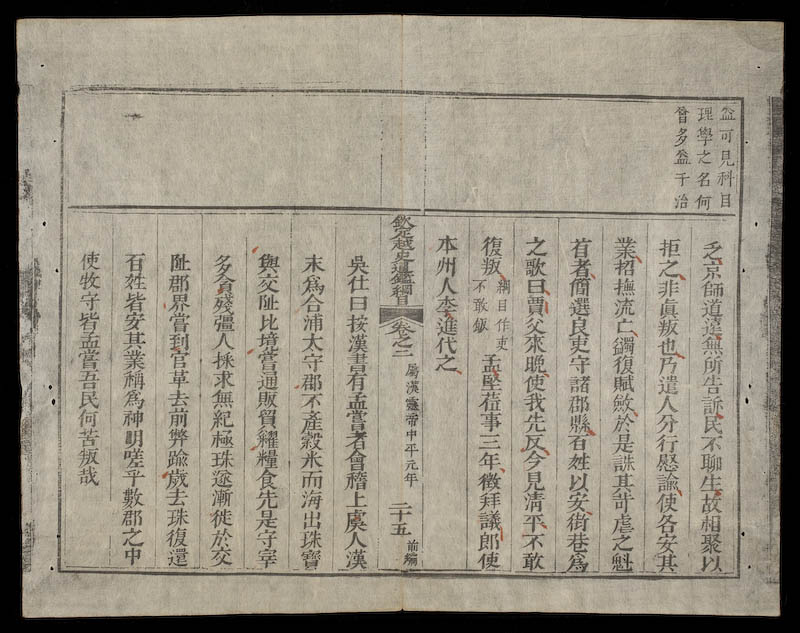 益可見科目
理學之名何
曾多益于治
乏京師道遠無所告訴民不聊生故相聚以
拒之非眞叛也乃遣人分行慰諭使各安其
業招撫流亡蠲復賦斂於是誅其苛虐之魁
者簡選良吏守諸郡縣百姓以安街巷爲
之歌曰賈父來晚使我先反今見清平不敢
復叛
綱目作吏
不敢飯
孟堅莅事三年徵拜議郎使
本州人李進代之
欽定越史通鑑綱目
卷之二
屬漢靈帝中平元年
二十五
前編
吳仕曰按漢書有孟嘗者會稽上虞人漢
末爲合浦太守郡不產穀米而海出珠寶
與交阯比境嘗通販貿糴糧食先是守宰
多貪殘彊人採求無紀極珠遂漸徙於交
阯郡界嘗到官革去前弊踰歲去珠復還
百姓皆安其業稱爲神明嗟乎數郡之中
使牧守皆孟嘗吾民何苦叛哉